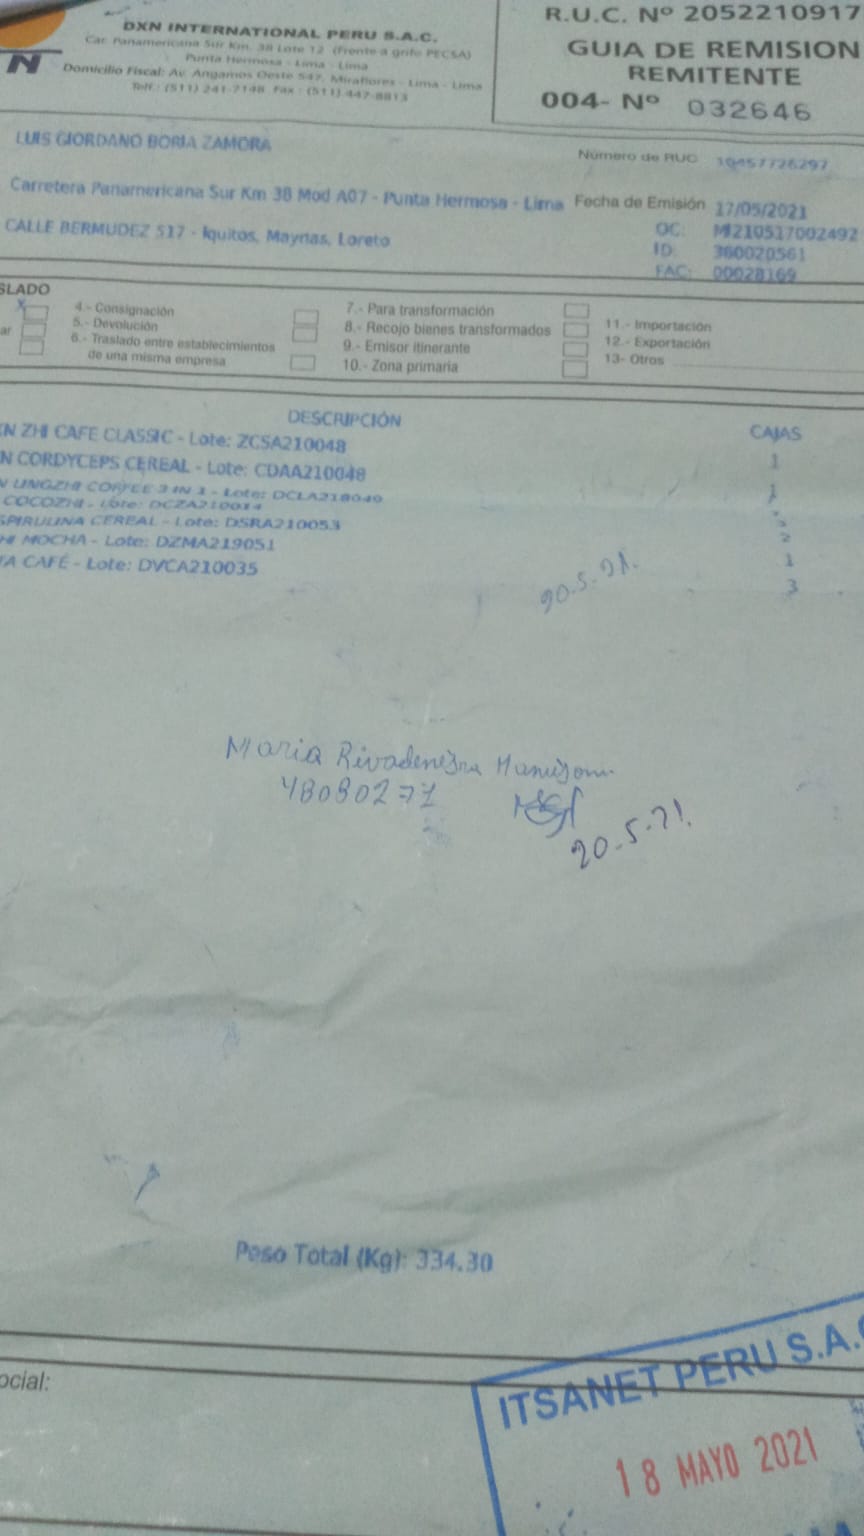 DXN INTERNATIONAL PERU S.A.C.
Car. Panamericana Sur Km. 38 Lote 12 (Frente a grifo PECSA)
Punta Hermosa - Lima - Lima
Domicilio Fiscal: Av. Angamos Oeste 547, Miraflores - Lima - Lima
Telf.: (511) 241-7148 Fax : (511) 447-8813
N
R.U.C. Nº 2052210917
GUIA DE REMISION
REMITENTE
004- Nº 032646
LUIS GIORDANO BORJA ZAMORA
Número de RUC 10457726297
Carretera Panamericana Sur Km 38 Mod A07 - Punta Hermosa - Lima Fecha de Emisión 17/05/2021
CALLE BERMUDEZ 517 - Iquitos, Maynas, Loreto
OC: MI210517002492
ID: 360020561
FAC: 00028169
SLADO
X
ar
4.- Consignación
5.- Devolución
6.- Traslado entre establecimientos
de una misma empresa
7.- Para transformación
8.- Recojo bienes transformados
9.- Emisor itinerante
10.- Zona primaria
11.- Importación
12.- Exportación
13- Otros
DESCRIPCIÓN CAJAS
N ZHI CAFE CLASSIC - Lote: ZCSA210048 1
N CORDYCEPS CEREAL - Lote: CDAA210048 1
N LINGZHI COFFEE 3 IN 1 - Lote: DCLA218049
COCOZHI - Lote: DCZA210014
SPIRULINA CEREAL - Lote: DSRA210053 2
HI MOCHA - Lote: DZMA219051 1
TA CAFÉ - Lote: DVCA210035 3
20.5.21.
Maria Rivadeneyra
48080271
20.5.21.
Peso Total (Kg): 334.30
ocial:
ITSANET PERU S.A.C
18 MAYO 2021